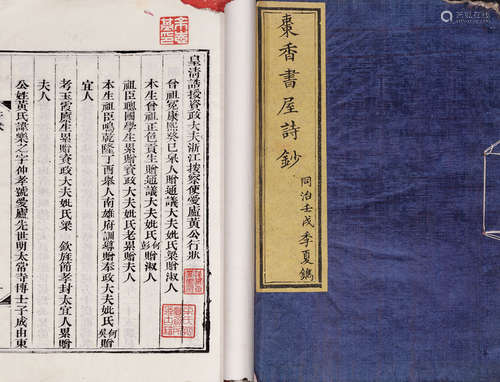 皇清誥授資政大夫浙江按察使愛廬黃公行狀
曾祖冕康熙癸巳舉人贈通議大夫妣氏梁贈淑人
本生曾祖正色貢生贈通議大夫妣氏何彭贈淑人
祖臣聰國學生累贈資政大夫妣氏老累贈夫人
本生祖臣鳴乾隆丁酉舉人南雄府訓導贈奉政大夫妣氏何吳
宜人
考玉生累贈資政大夫妣氏梁 欽旌節孝封太宜人累贈
夫人
公姓黃氏諱樂之字仲孝號愛廬先世明太常寺博士子成由東
棗香書屋詩鈔
同治壬戌季夏鐫